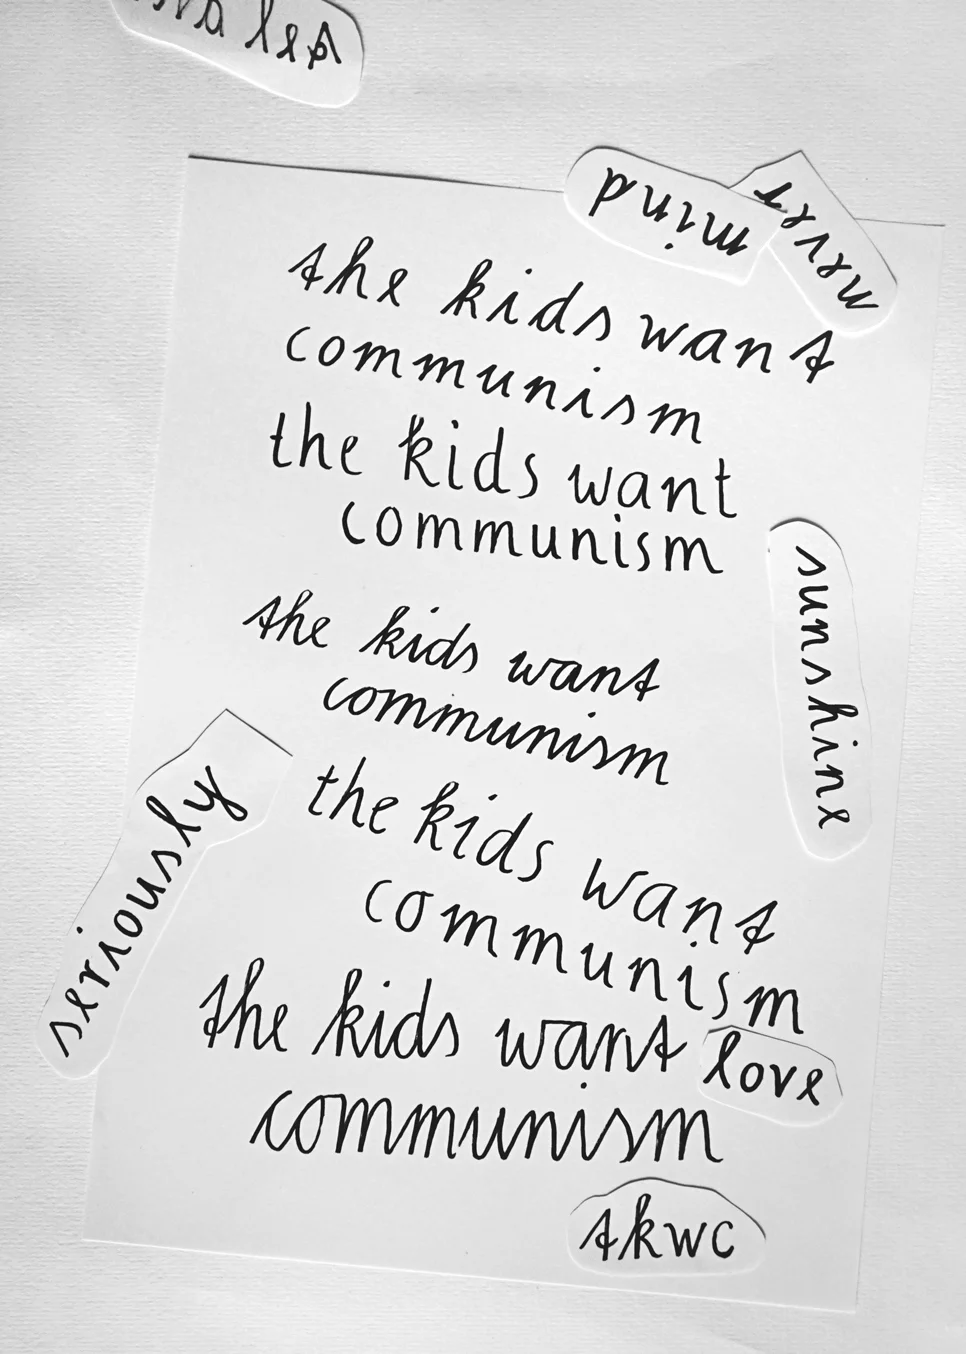 never
mind
the kids want
communism
the kids want
communism
sunshine
the kids want
communism
seriously
the kids want
communism
the kids want
love
communism
tkwc